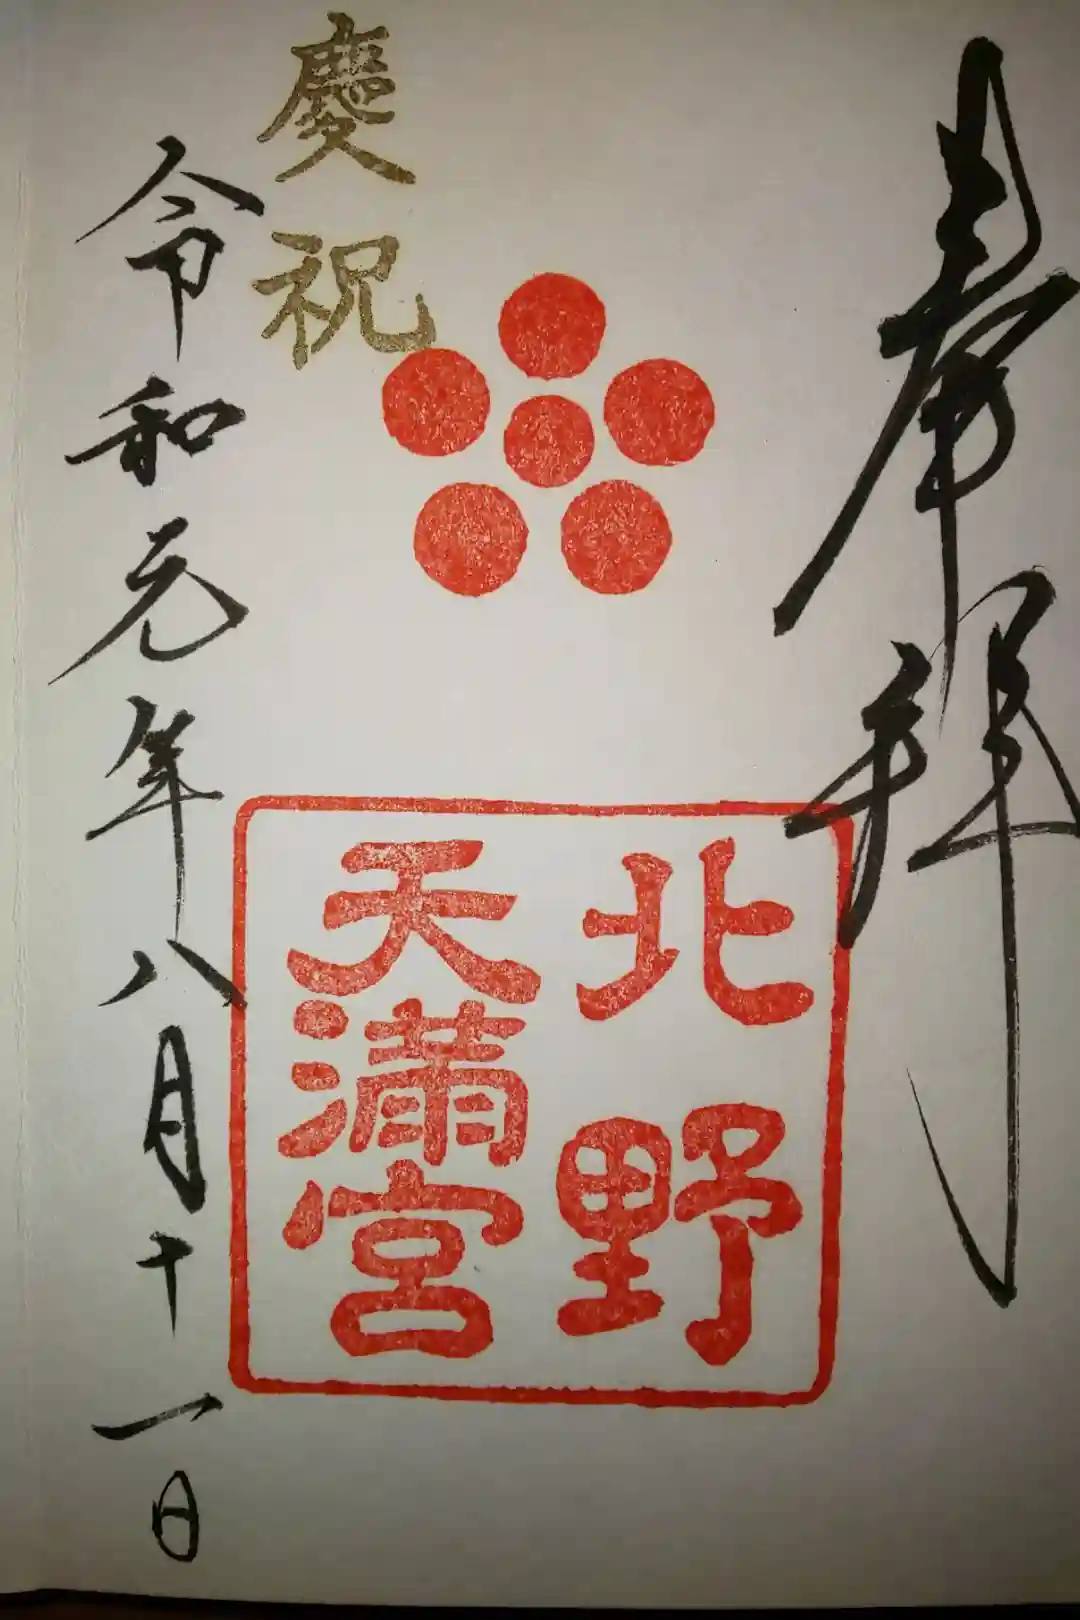 奉拝
北野
天満宮
慶祝
令和元年八月十一日